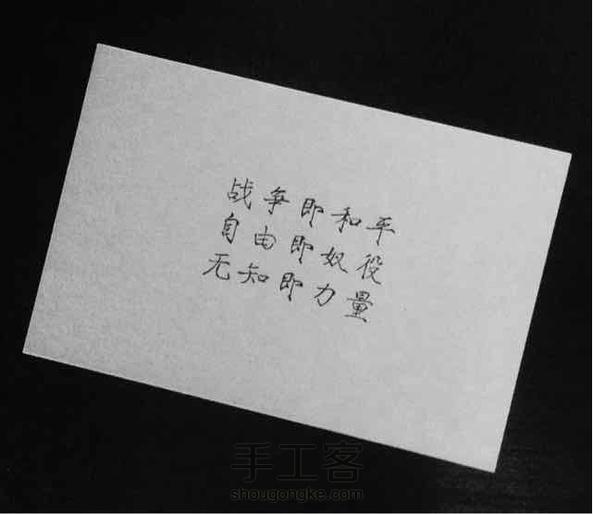 战争即和平
自由即奴役
无知即力量
手工客
shougongke.com